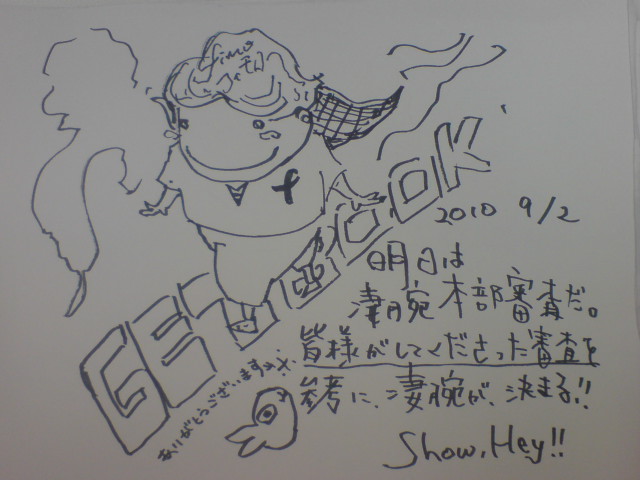 fimo
2010 9/2
明日は
凄腕本部審査だ。
皆様がしてくださった審査を
参考に、凄腕が、決まる!!
ありがとうございます
Show, Hey!!